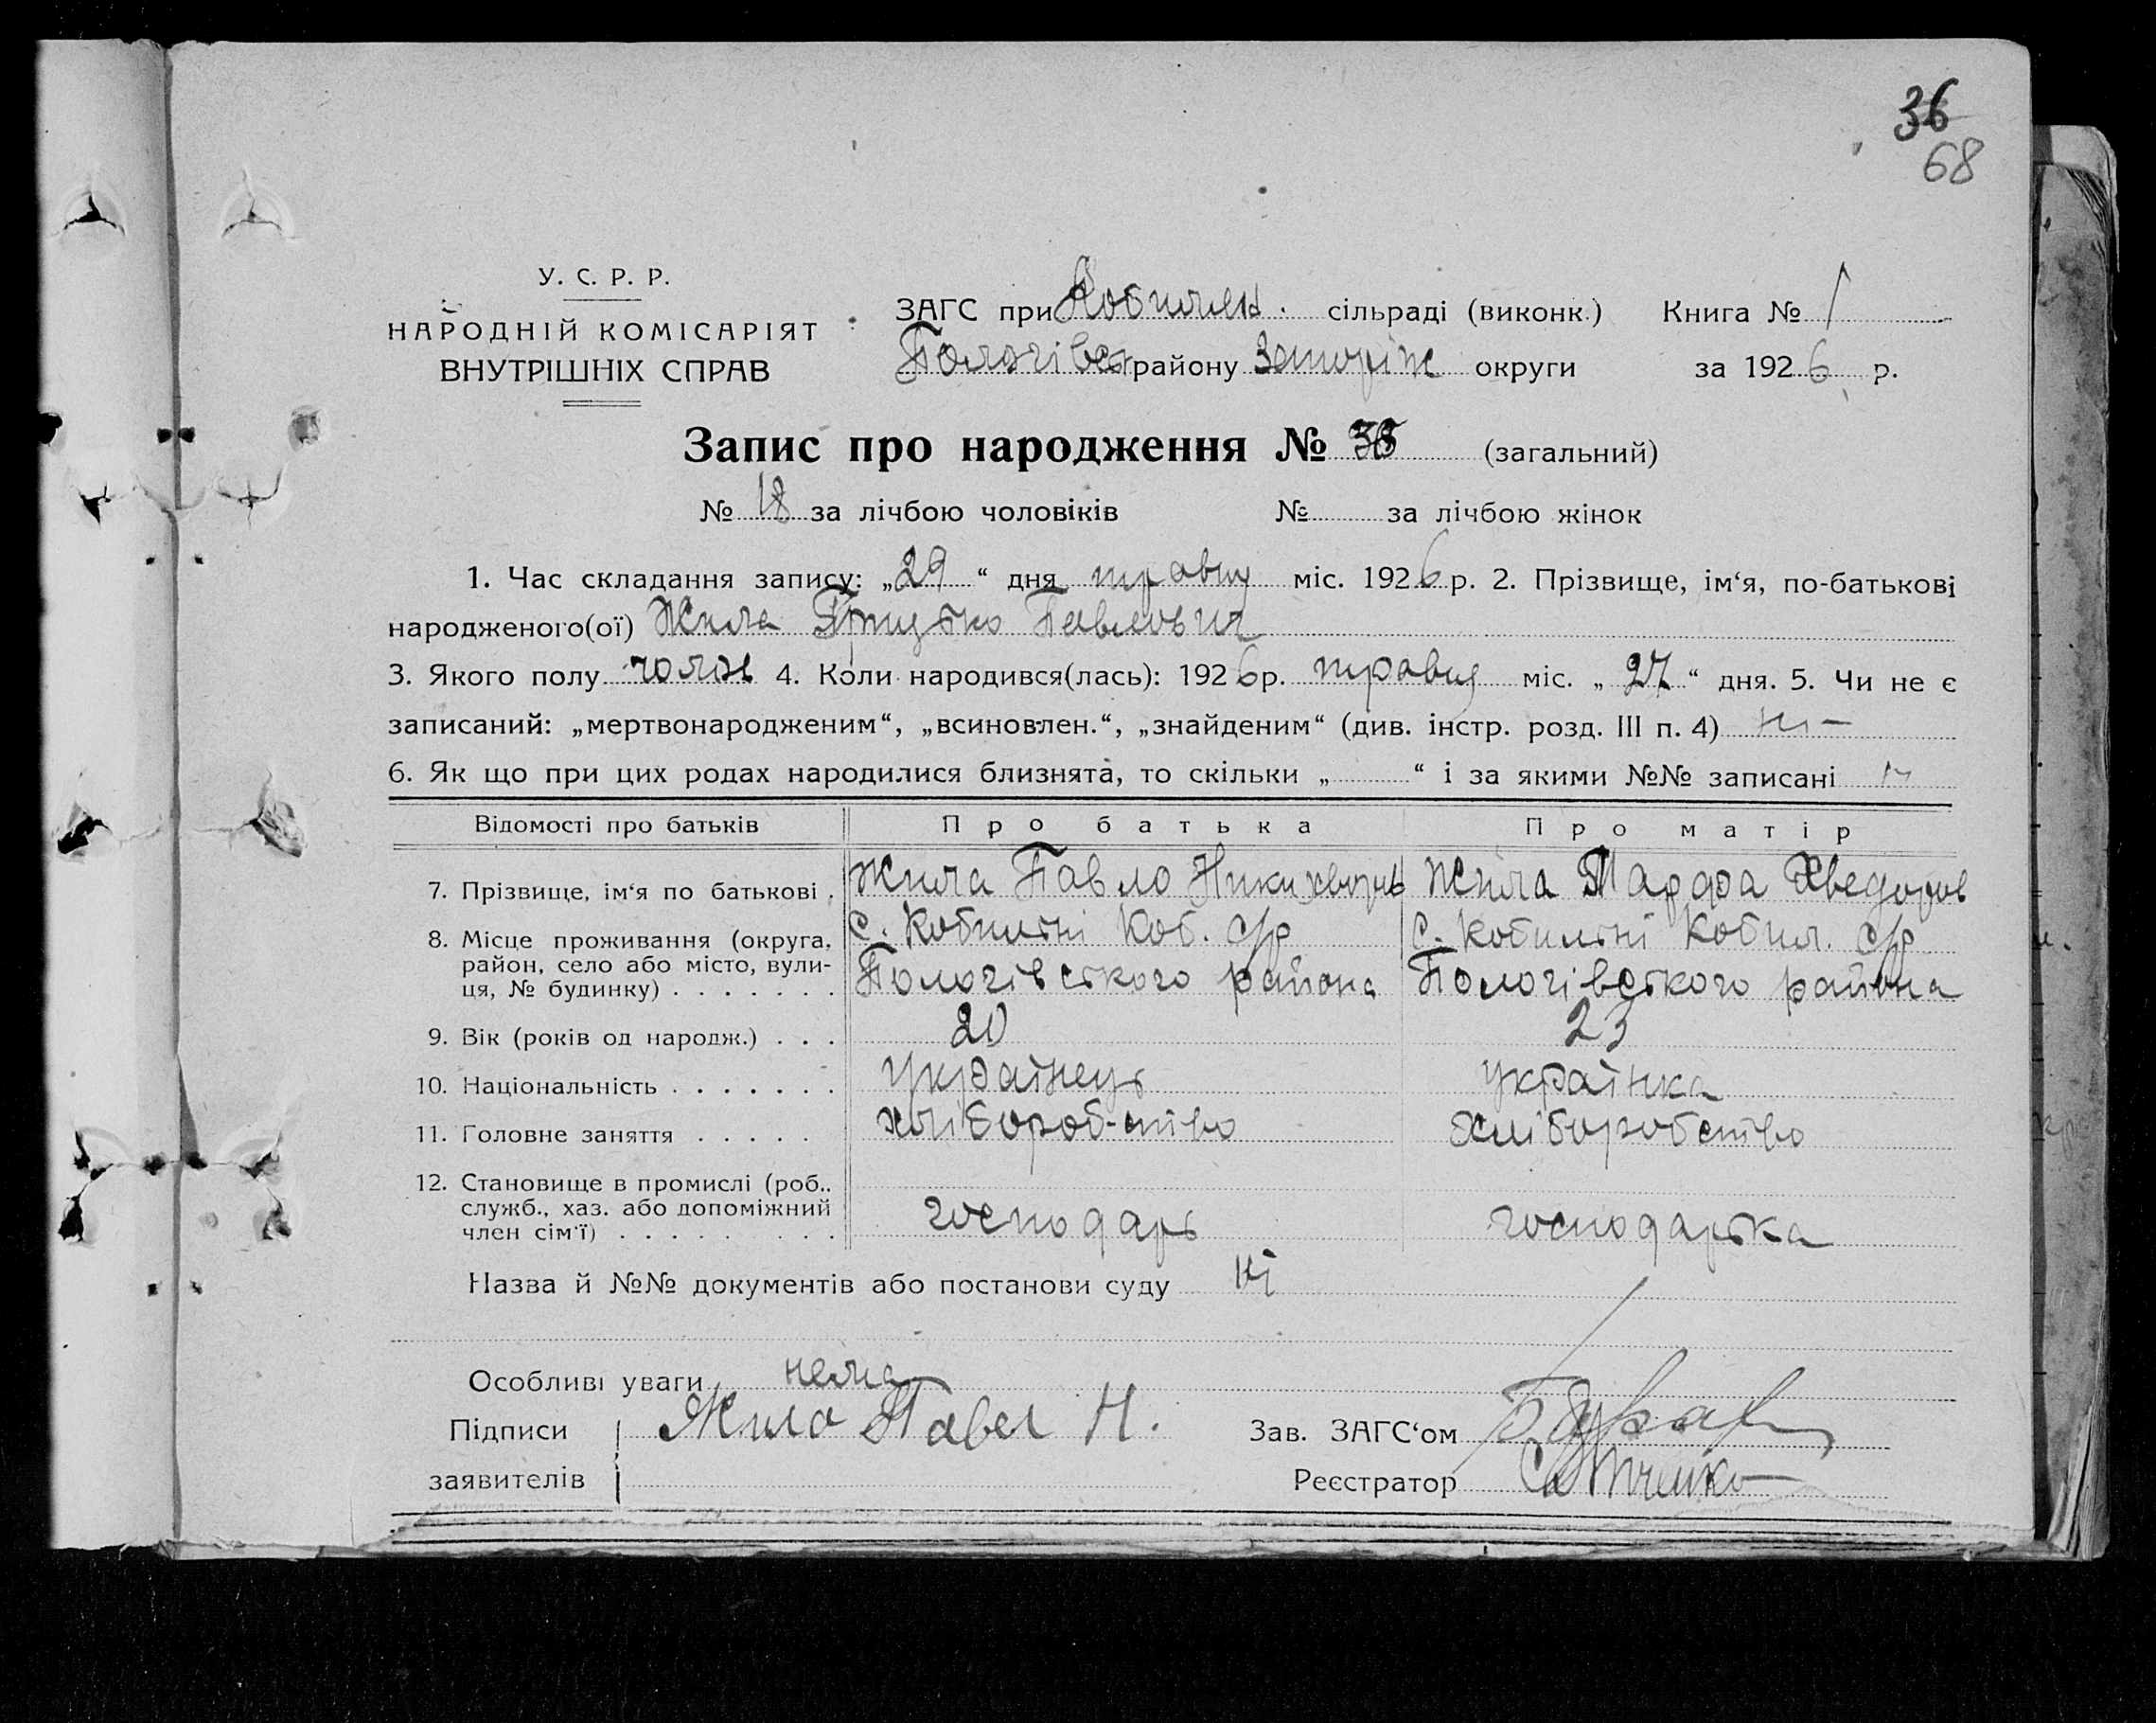 36
68
У. С. Р. Р.
НАРОДНІЙ КОМІСАРІЯТ
ВНУТРІШНІХ СПРАВ
ЗАГС при сільраді (виконк.) Книга № 1
Пологівськ району Запоріж округи за 1926 р.
Запис про народження № (загальний)
№ 18 за лічбою чоловіків № за лічбою жінок
1. Час складання запису: „29“ дня травня міс. 1926 р. 2. Прізвище, ім‘я, по-батькові
народженого(ої) Жила Грицько Павлович
3. Якого полу чолов 4. Коли народився(лась): 1926 р. травня міс. „27“ дня. 5. Чи не є
записаний: „мертвонародженим“, „всиновлен.“, „знайденим“ (див. інстр. розд. III п. 4) ні —
6. Як що при цих родах народилися близнята, то скільки „ “ і за якими №№ записані
Відомості про батьків Про батька Про матір
7. Прізвище, ім‘я по батькові . Жила Павло Никихворов Жила Марфа Хведоров
8. Місце проживання (округа, с. Кобильні Коб. с/р с. Кобильні Кобил. с/р
район, село або місто, вули- Пологівського района Пологівського района
ця, № будинку) . . . . . . .
9. Вік (років од народж.) . . . 20 23
10. Національність . . . . . . . українець українка
11. Головне заняття . . . . . хліборобство хліборобство
12. Становище в промислі (роб.,
служб., хаз. або допоміжний господарь господарька
член сім‘ї) . . . . . . . .
Назва й №№ документів або постанови суду ні
Особливі уваги нема
Підписи Жило Павел Н. Зав. ЗАГС‘ом
заявителів Реєстратор